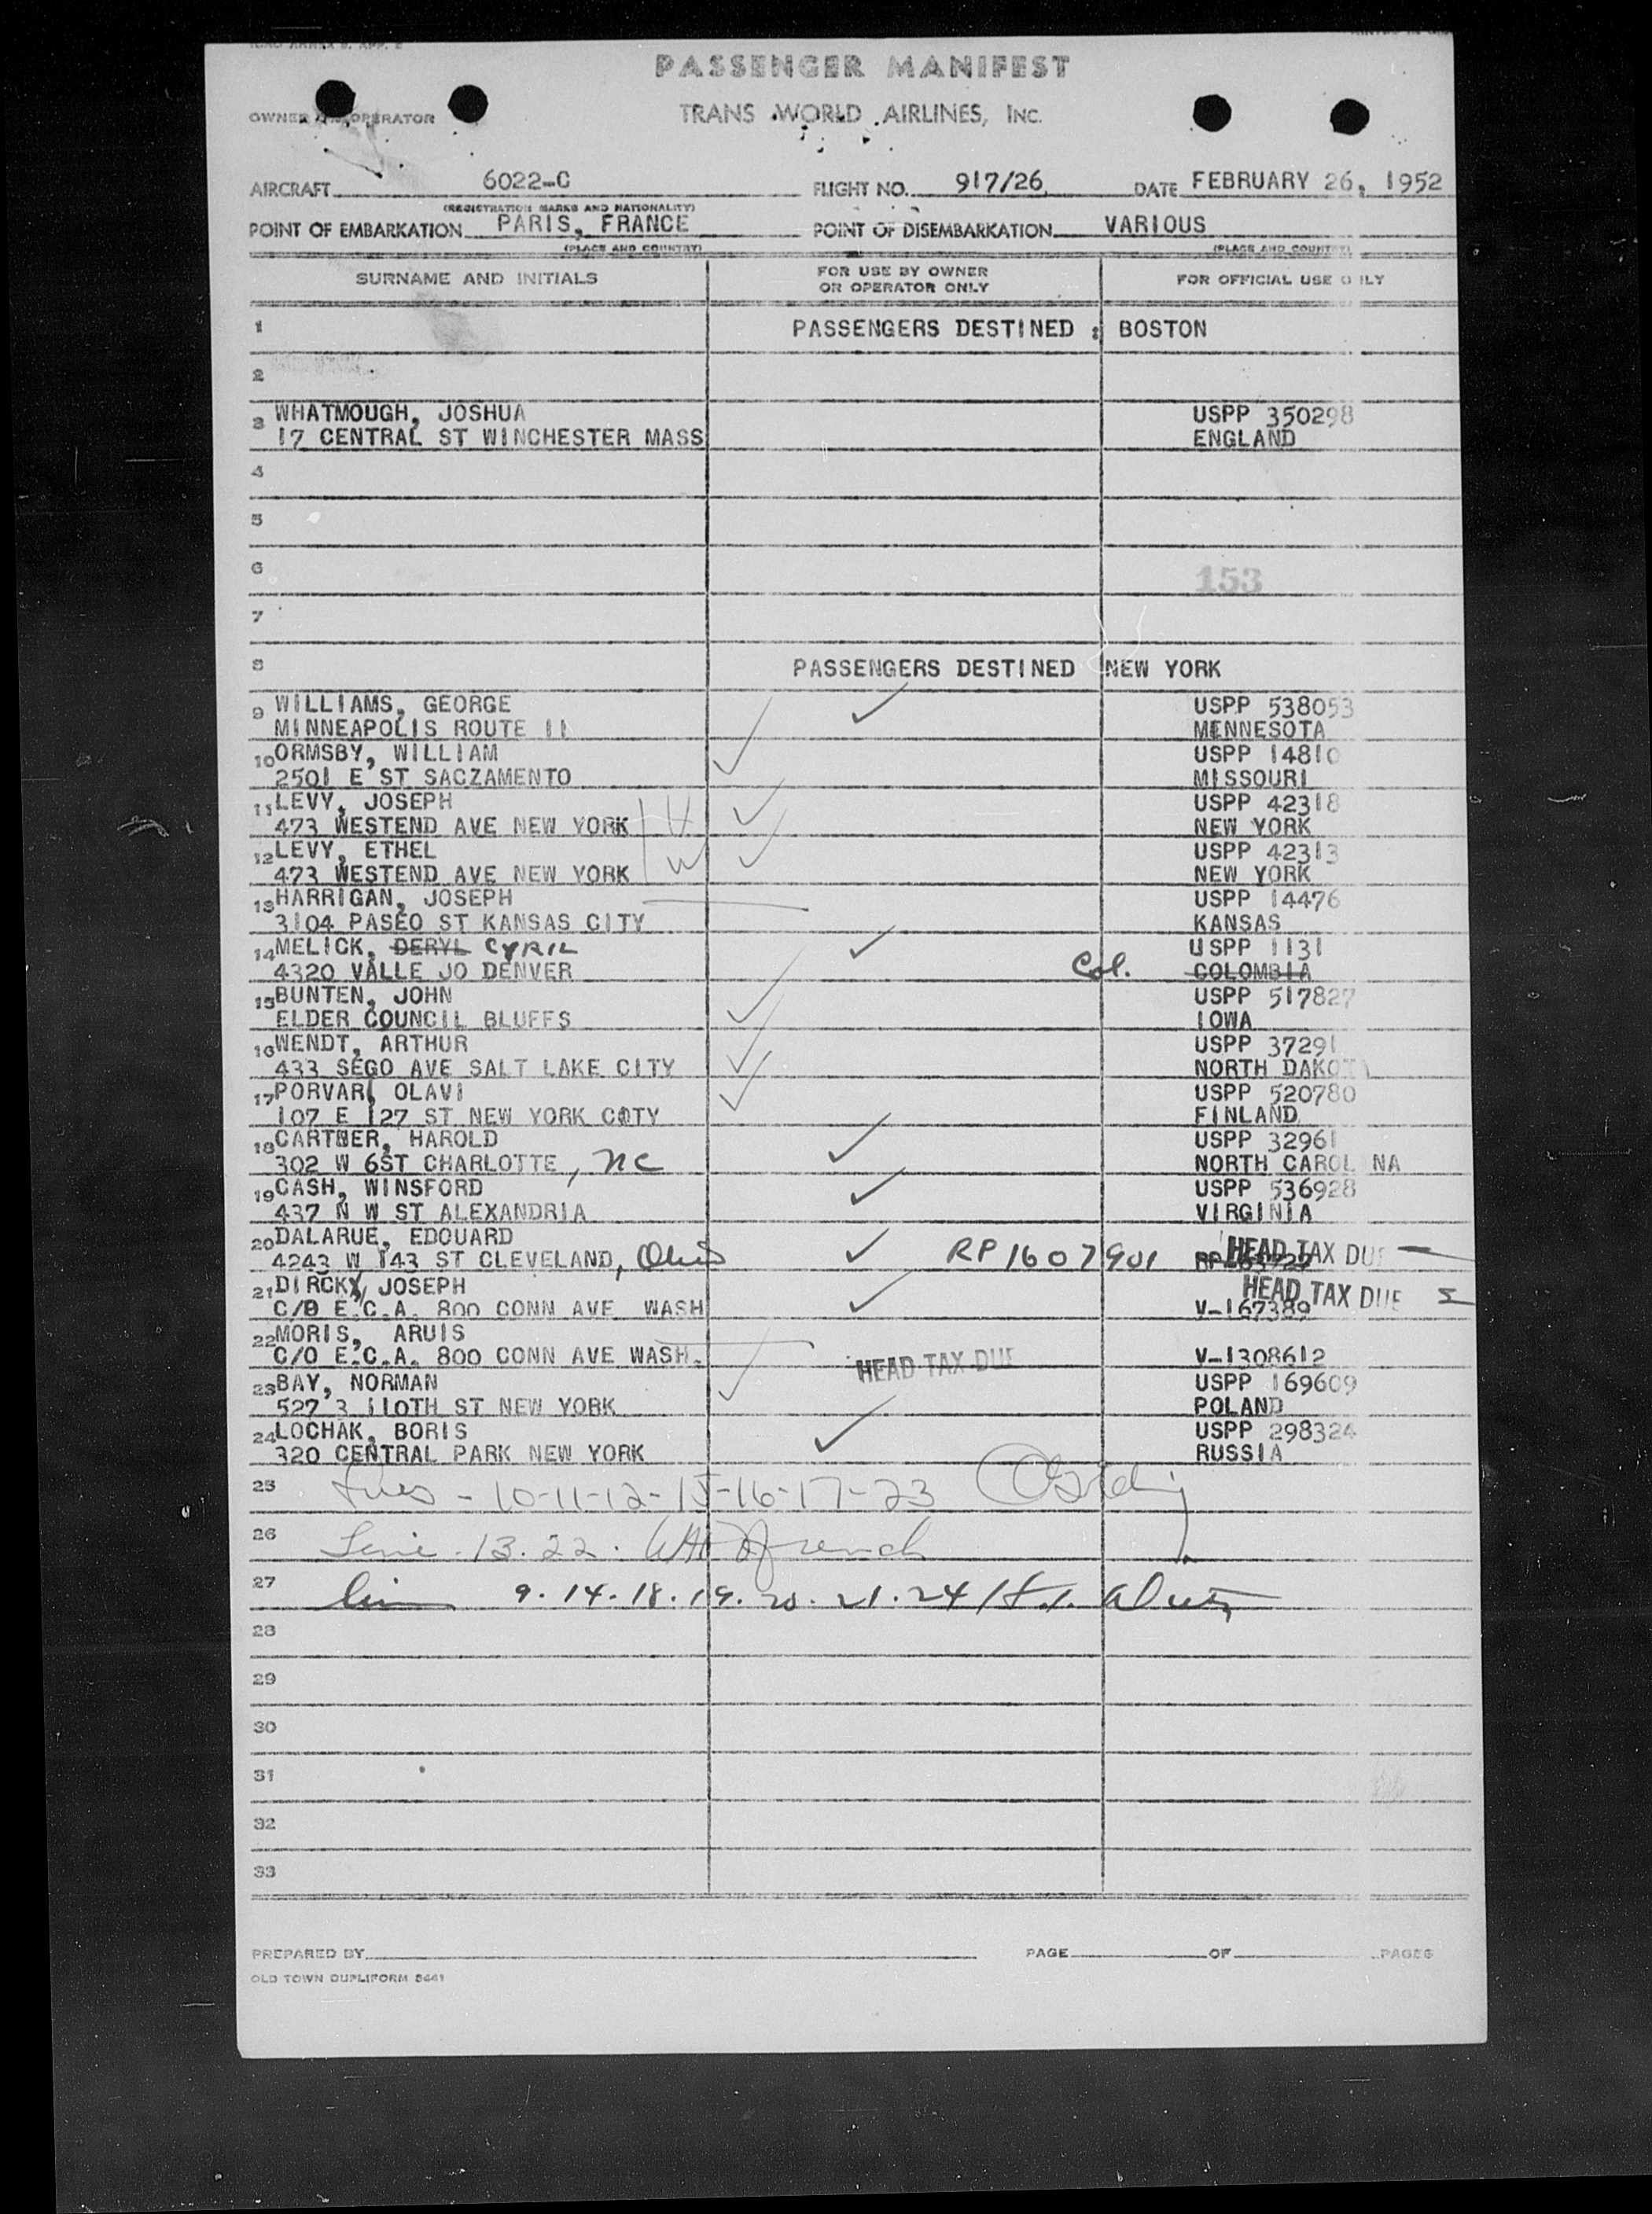 PASSENGER MANIFEST
OWNER OPERATOR
TRANS WORLD AIRLINES, INC.
AIRCRAFT 6022-C FLIGHT NO. 917/26 DATE FEBRUARY 26, 1952
(REGISTRATION MARKS AND NATIONALITY)
POINT OF EMBARKATION PARIS, FRANCE POINT OF DISEMBARKATION VARIOUS
(PLACE AND COUNTRY) (PLACE AND COUNTRY)
SURNAME AND INITIALS FOR USE BY OWNER OR OPERATOR ONLY FOR OFFICIAL USE ONLY
1 PASSENGERS DESTINED : BOSTON
2
3 WHATMOUGH, JOSHUA USPP 350298
17 CENTRAL ST WINCHESTER MASS ENGLAND
4
5
6 153
7
8 PASSENGERS DESTINED NEW YORK
9 WILLIAMS, GEORGE USPP 538053
MINNEAPOLIS ROUTE 11 MENNESOTA
10 ORMSBY, WILLIAM USPP 14810
2501 E ST SACZAMENTO MISSOURI
11 LEVY, JOSEPH USPP 42318
473 WESTEND AVE NEW YORK H NEW YORK
12 LEVY, ETHEL USPP 42313
473 WESTEND AVE NEW YORK W NEW YORK
13 HARRIGAN, JOSEPH USPP 14476
3104 PASEO ST KANSAS CITY KANSAS
14 MELICK, DERYL CYRIL USPP 1131
4320 VALLE JO DENVER Col. COLOMBIA
15 BUNTEN, JOHN USPP 517827
ELDER COUNCIL BLUFFS IOWA
16 WENDT, ARTHUR USPP 37291
433 SEGO AVE SALT LAKE CITY NORTH DAKOT
17 PORVARI, OLAVI USPP 520780
107 E 127 ST NEW YORK CITY FINLAND
18 CARTNER, HAROLD USPP 32961
302 W 6ST CHARLOTTE, NC NORTH CAROL NA
19 CASH, WINSFORD USPP 536928
437 N W ST ALEXANDRIA VIRGINIA
20 DALARUE, EDOUARD HEAD TAX DUE
4243 W 143 ST CLEVELAND, Ohio RP 1607901
21 DIRCKX, JOSEPH HEAD TAX DUE
C/O E.C.A. 800 CONN AVE WASH V-167389
22 MORIS, ARUIS
C/O E.C.A. 800 CONN AVE WASH. HEAD TAX DUE V-1308612
23 BAY, NORMAN USPP 169609
527 3 110TH ST NEW YORK POLAND
24 LOCHAK, BORIS USPP 298324
320 CENTRAL PARK NEW YORK RUSSIA
25 Lines - 10-11-12-15-16-17-23
26 Line 13. 22.
27 9. 14. 18. 19. 20. 21. 24
28
29
30
31
32
33
PREPARED BY PAGE OF PAGES
OLD TOWN DUPLIFORM 5441